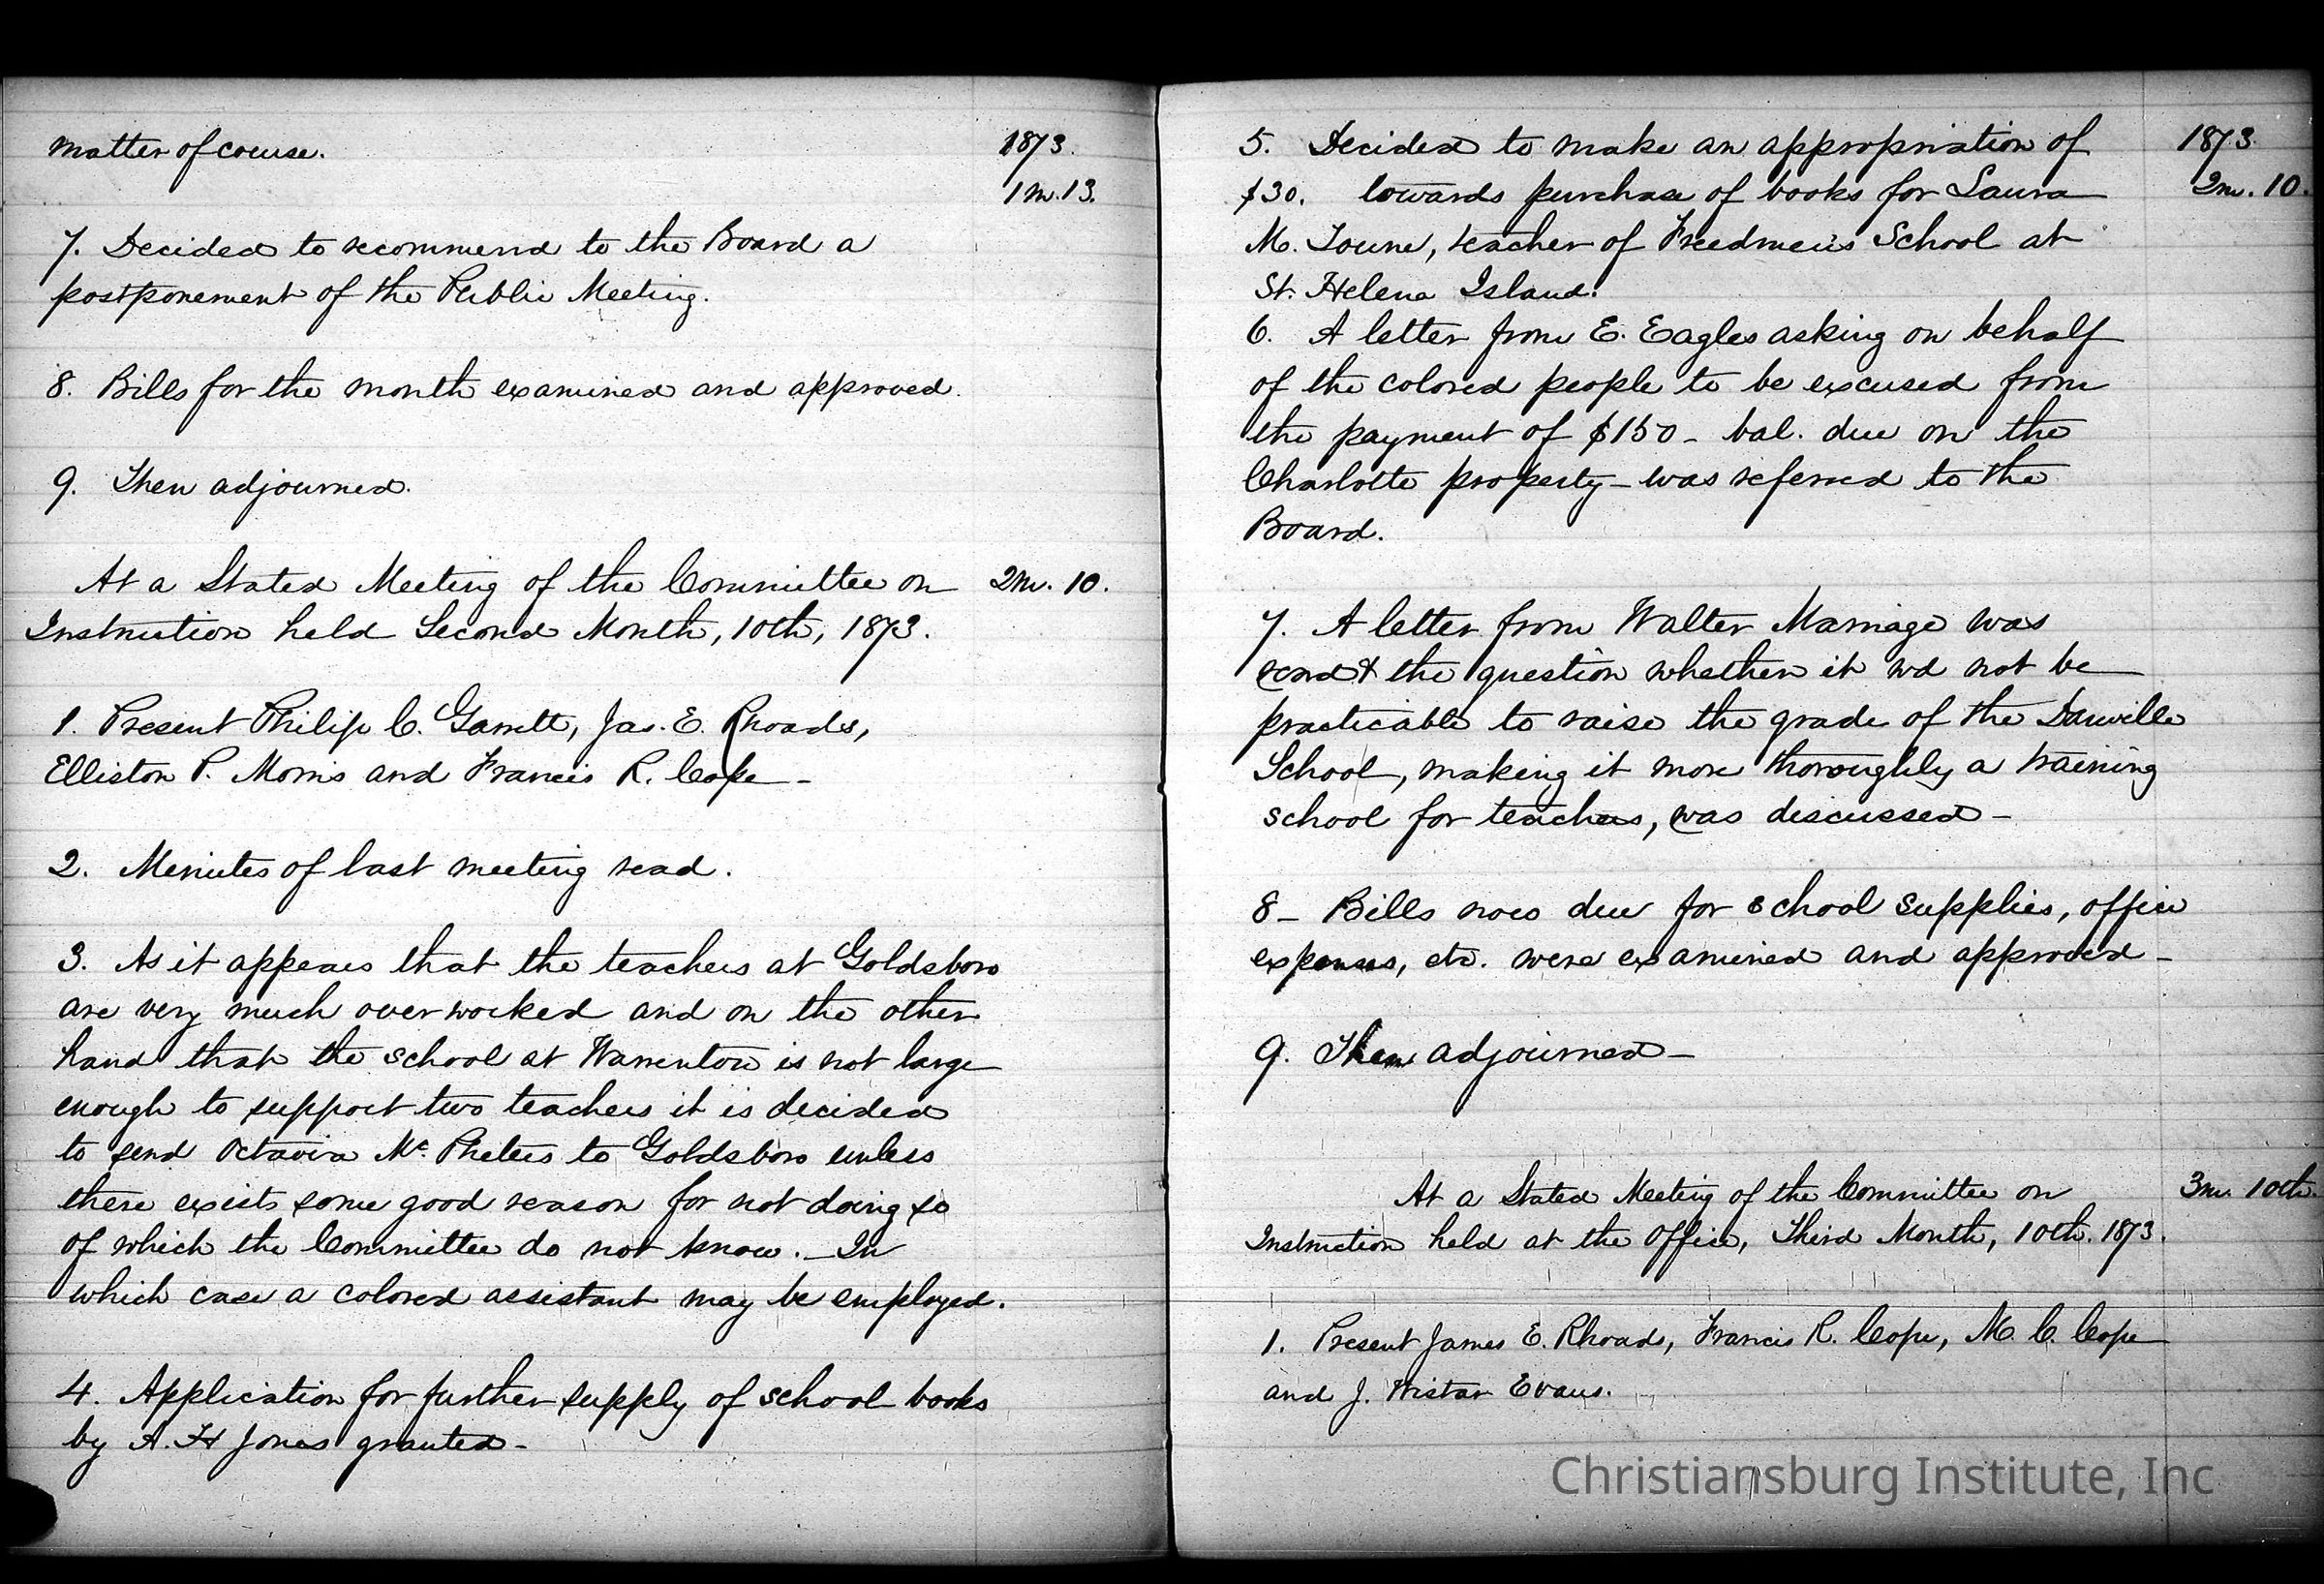 matter of course.
1873.
1m.13.
7. Decided to recommend to the Board a
postponement of the Public Meeting.
8. Bills for the month examined and approved.
9. Then adjourned.
At a Stated Meeting of the Committee on
2m. 10.
Instruction held Second Month, 10th, 1873.
1. Present Philip C. Garrett, Jas. E. Rhoads,
Elliston P. Morris and Francis R. Cope -
2. Minutes of last meeting read.
3. As it appears that the teachers at Goldsboro
are very much overworked and on the other
hand that the school at Warrenton is not large
enough to support two teachers it is decided
to send Octavia Mc Pheters to Goldsboro unless
there exists some good reason for not doing so
of which the Committee do not know. - In
which case a colored assistant may be employed.
4. Application for further supply of school books
by A. H Jones granted -
5. Decided to make an appropriation of
1873.
$30. towards purchase of books for Laura
2m. 10.
M. Towne, teacher of Freedmen's School at
St. Helena Island.
6. A letter from E. Eagles asking on behalf
of the colored people to be excused from
the payment of $150 - bal. due on the
Charlotte property - was referred to the
Board.
7. A letter from Walter Marriage was
read & the question whether it wd not be
practicable to raise the grade of the Danville
School, making it more thoroughly a training
school for teachers, was discussed -
8 - Bills now due for school supplies, office
expenses, etc. were examined and approved -
9. Then adjourned -
At a Stated Meeting of the Committee on
3m. 10th.
Instruction held at the Office, Third Month, 10th. 1873.
1. Present James E. Rhoads, Francis R. Cope, M. C. Cope
and J. Wistar Evans.
Christiansburg Institute, Inc